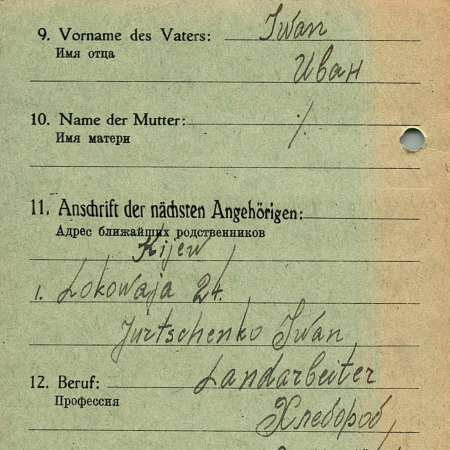 9. Vorname des Vaters: Iwan
Имя отца
Иван
10. Name der Mutter: /.
Имя матери
11. Anschrift der nächsten Angehörigen:
Адрес ближайших родственников
Kijew
1. Lokowaja 24.
Jurtschenko Iwan
12. Beruf: Landarbeiter
Профессия
Хлебороб,